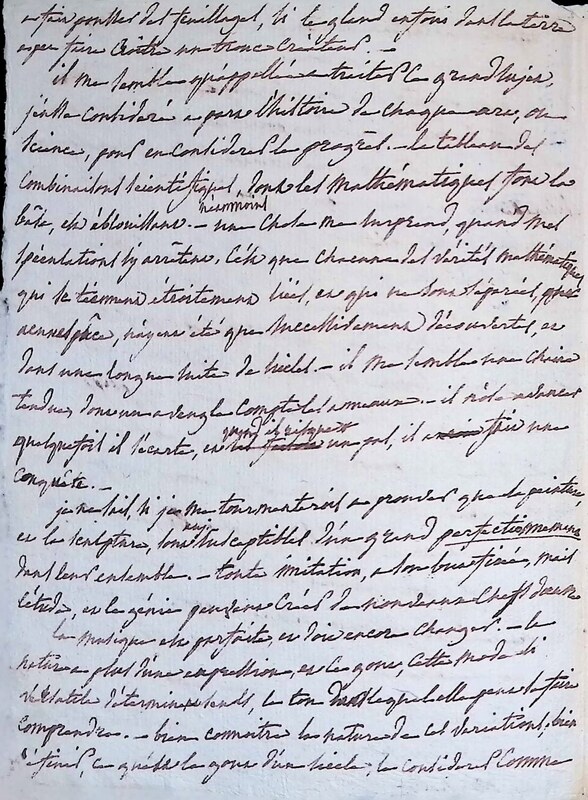 pousses des feuillages, si le gland enfoui dans la terre
a pu faire croître un tronc
il me semble qu'appellé a traiter ce grand sujet,
j'eusse consideré a part l'histoire de chaque art, ou
science, pour en considerer le progrès. - le tableau des
combinaisons scientifiques, dont les mathématiques font la
bâse, est éblouissant. - néanmoins une chose me surprend, quand mes
spéculations s'y arrêtent. C'est que chacune des vérités mathématiques
qui se tiennent étroitement liées, et qui ne sont séparées, par
aucun espâce, n'ayent été que successivement découvertes, et
dans une longue suite de siècles. - il me semble une chaine
tendue, dont un aveugle compte les anneaux. - il n'ose avancer
quelquefois il s'écarte, et quand il rattrape un pas, il a fait une
conquête. -
je ne sais, si je me tourmenterois a prouver que la peinture
et la sculpture, sont aussi susceptibles d'un grand perfectionnement
dans leur ensemble. - toute imitation, a son but fixé, mais
l'étude, et le génie peuvent créer de nouveaux chefs d'oeuvre
la musique est parfaite, et doit encore changer. - la
nature a plus d'une expression, et le gout, cette mode si
versatile détermine seule, le ton dans lequel elle peut se faire
comprendre. - bien connoitre la nature de ces variations, bien
définir, ce qu'est le gout d'un siècle, le considerer comme